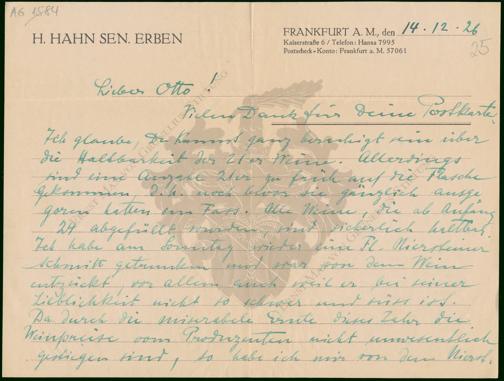 AG 1584
H. HAHN SEN. ERBEN
FRANKFURT A. M., den 14.12.26
Kaiserstraße 6 / Telefon: Hansa 7995
Postscheck-Konto: Frankfurt a. M. 57061
25
Lieber Otto!
Vielen Dank für Deine Postkarte.
Ich glaube, Du kannst ganz beruhigt sein über
die Haltbarkeit der 21er Weine. Allerdings
sind eine Anzahl 21er zu früh auf die Flasche
gekommen, d.h. noch bevor sie gänzlich ausge
goren hatten im Fass. Alle Weine, die ab Anfang
24 abgefüllt wurden, sind sicherlich haltbar.
Ich habe am Sonntag wieder eine Fl. Niersteiner
getrunken und war von dem Wein
entzückt, vor allem auch weil er bei seiner
Lieblichkeit nicht so schwer und süss ist.
Da durch die miserable Ernte dieses Jahr die
Weinpreise vom Produzenten nicht unwesentlich
gestiegen sind, so habe ich mir von dem Nierst.